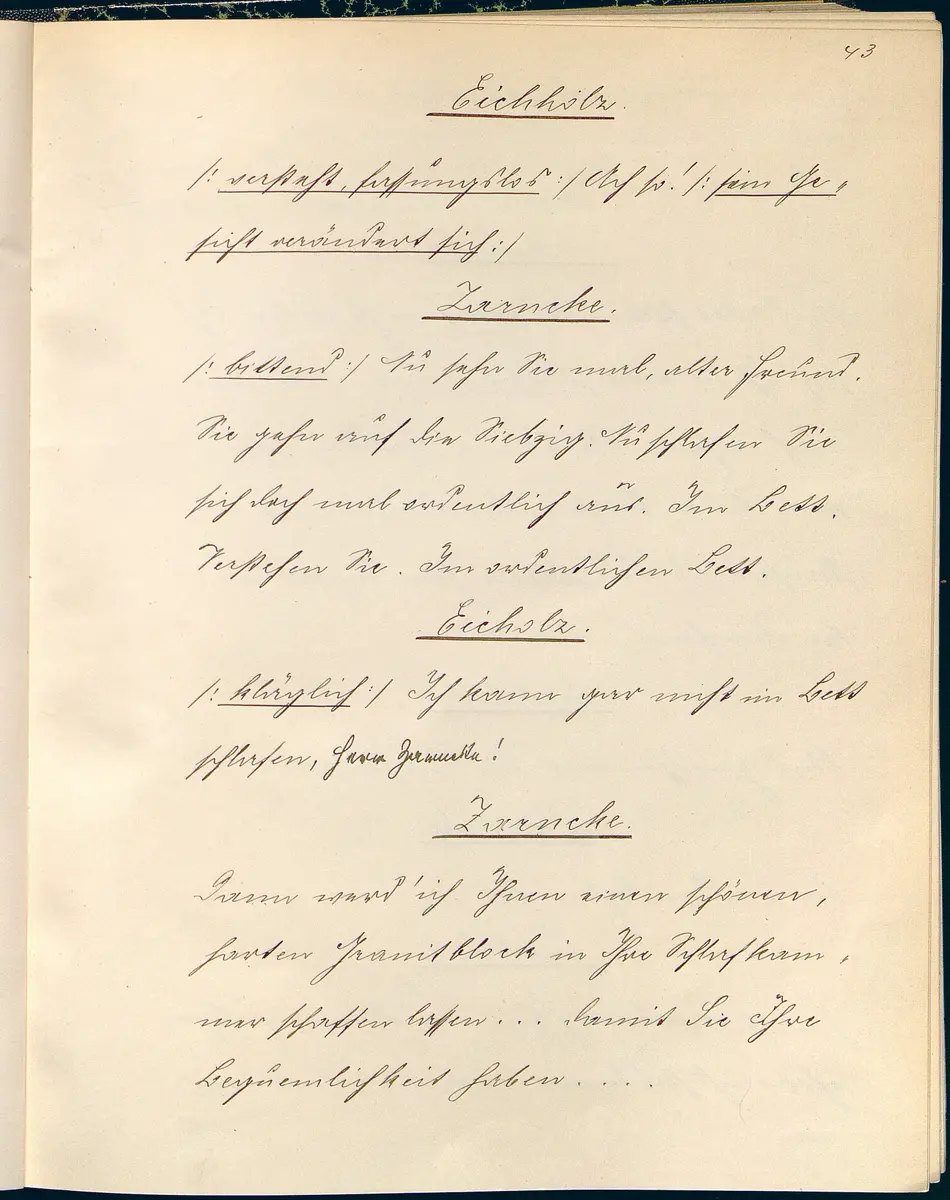 43
Eichholz.
/: versteht, fassungslos :/ Ach so! /: sein Ge-
sicht verändert sich :/
Zarncke.
/: bittend :/ Nu sehn Sie mal, alter Freund.
Sie gehn auf die Siebzig. Nu schlafen Sie
sich doch mal ordentlich aus. Im Bett.
Verstehen Sie. Im ordentlichen Bett.
Eicholz.
/: kläglich :/ Ich kann gar nicht im Bett
schlafen, Herr Zarncke!
Zarncke.
Dann werd' ich Ihnen einen schönen,
harten Granitblock in Ihre Schlafkam-
mer schaffen lassen ... damit Sie Ihre
Bequemlichkeit haben ....